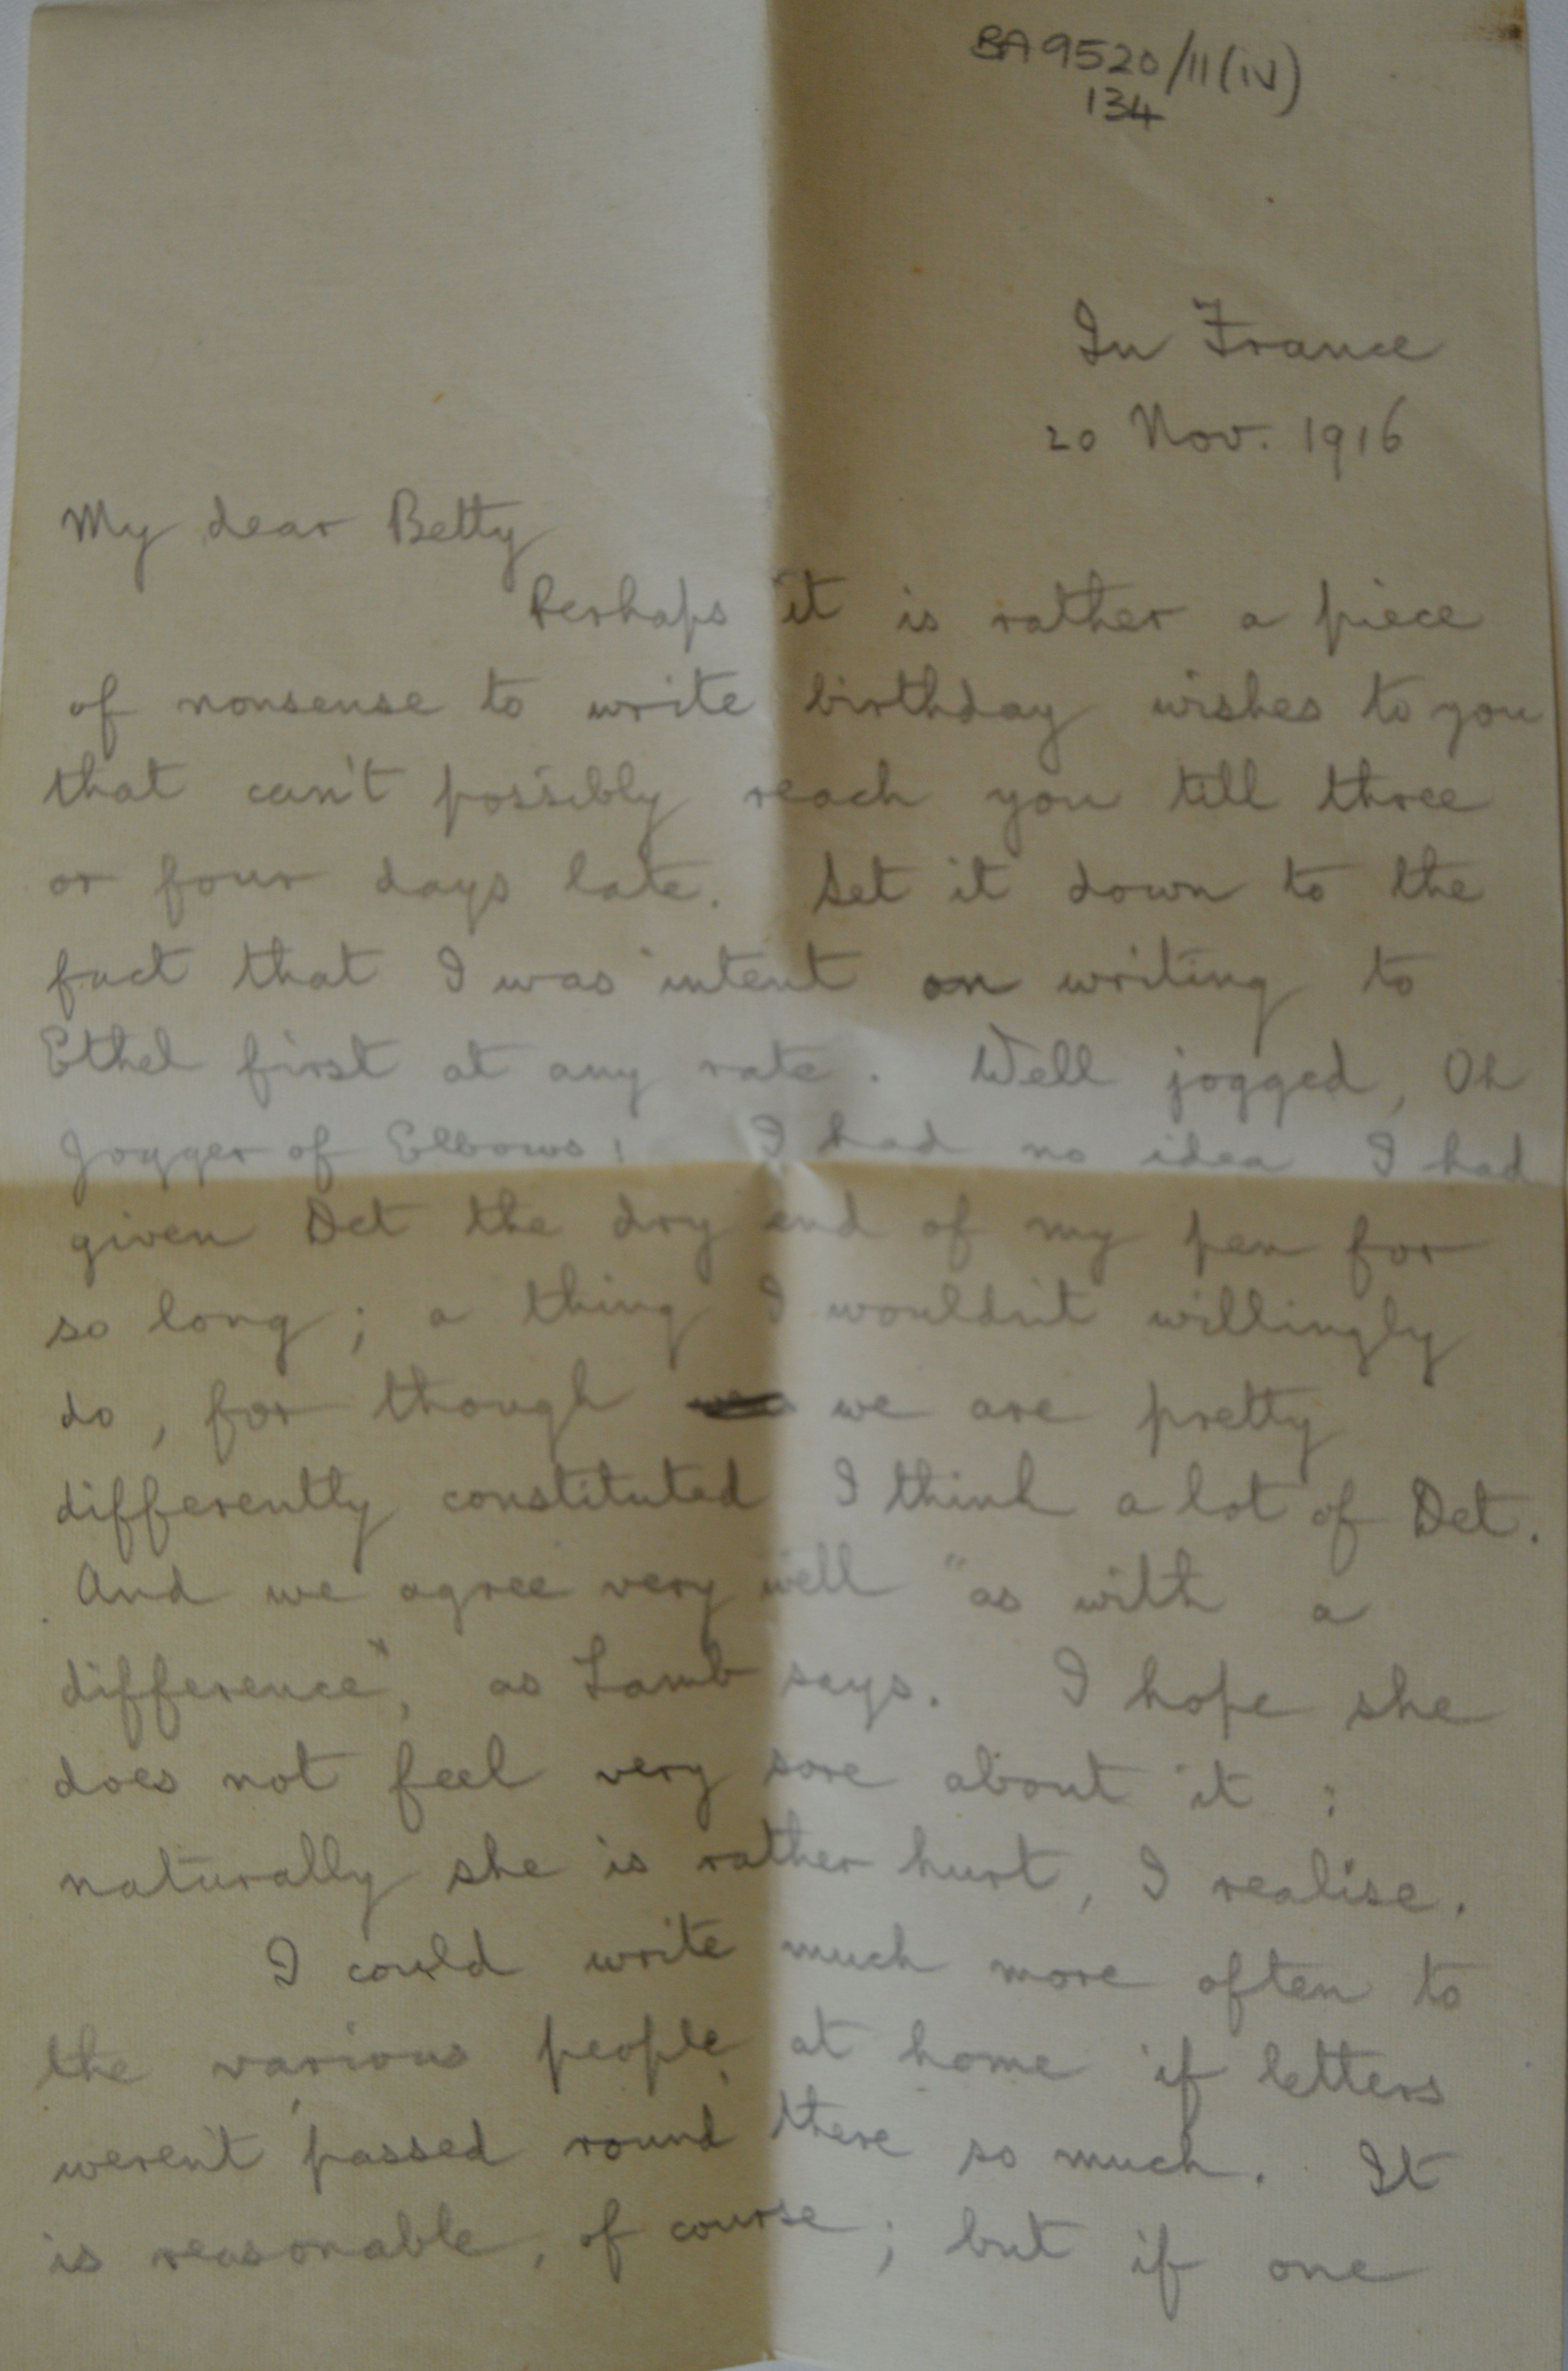 BA9520/11(iv)
134
In France
20 Nov. 1916
My dear Betty
Perhaps it is rather a piece
of nonsense to write birthday wishes to you
that can't possibly reach you till three
or four days late. Set it down to the
fact that I was intent on writing to
Ethel first at any rate. Well jogged, Oh
Jogger of Elbows! I had no idea I had
given Det the dry end of my pen for
so long; a thing I wouldn't willingly
do, for though we are pretty
differently constituted I think a lot of Det.
And we agree very well "as with a
difference", as Lamb says. I hope she
does not feel very sore about it :
naturally she is rather hurt, I realise.
I could write much more often to
the various people at home if letters
weren't passed round there so much. It
is reasonable, of course; but if one